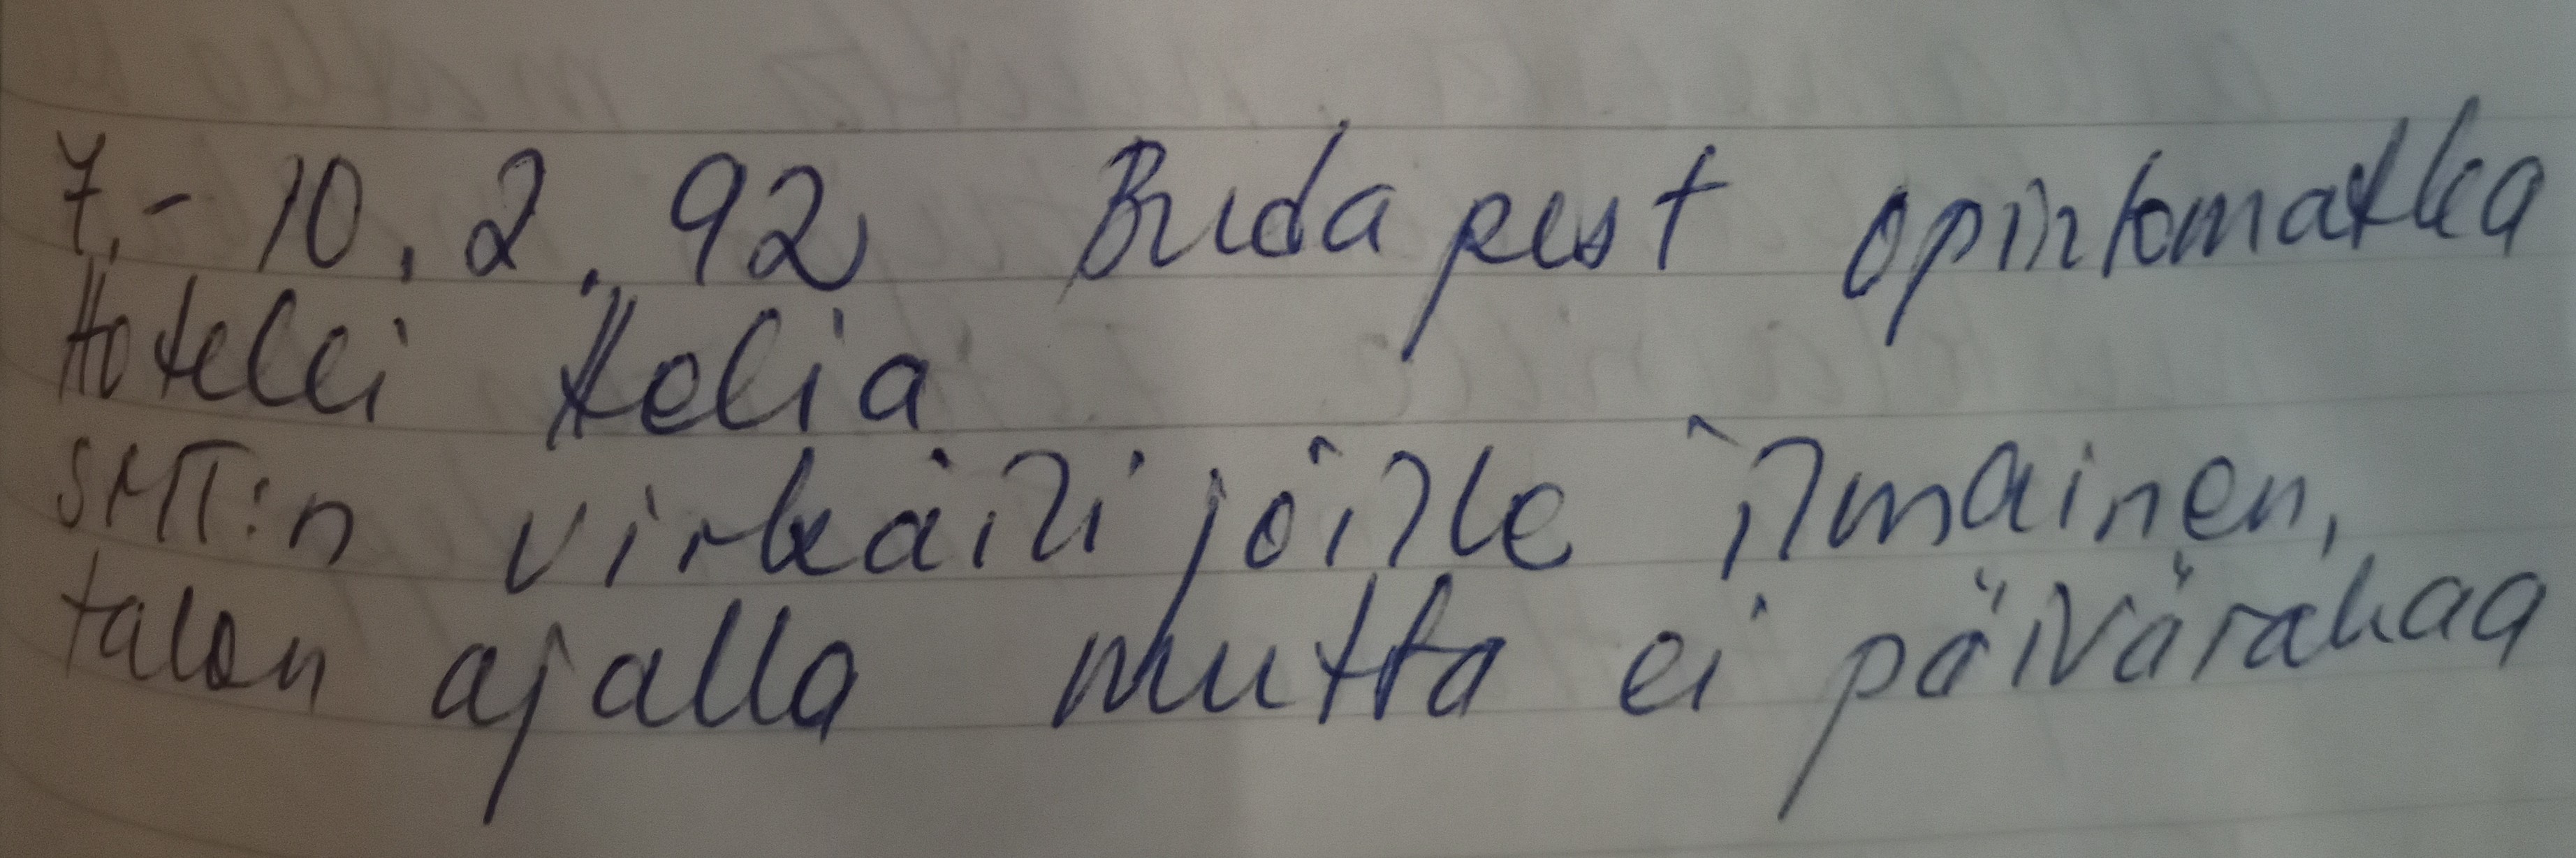 7.- 10.2.92 Budapest opintomatka
Hotelli Helia
SMT:n virkäilijöille ilmainen,
talon ajalla mutta ei päivärahaa